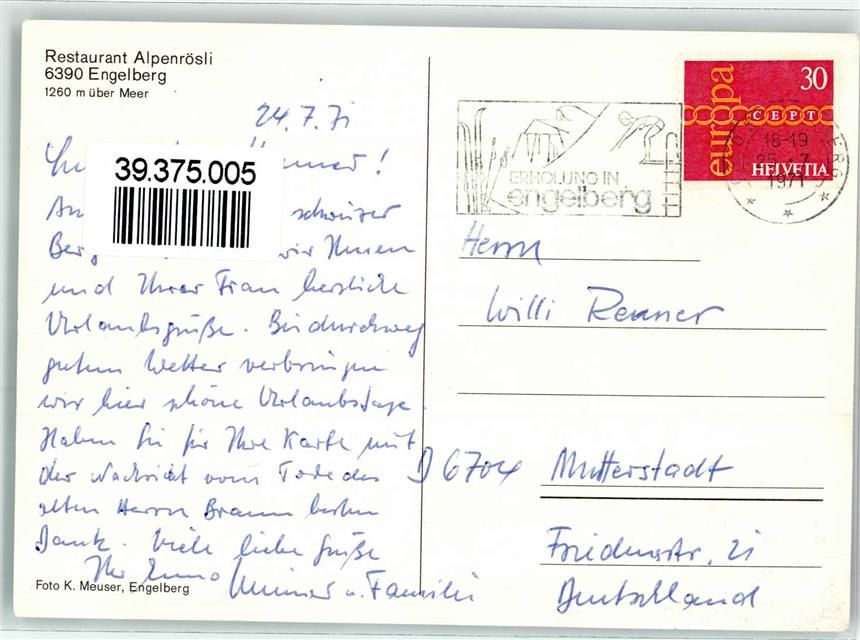 Restaurant Alpenrösli
6390 Engelberg
1260 m über Meer
24.7.71
39.375.005
schweizer
wir Ihnen
und Ihrer Frau herzliche
Urlaubsgrüße. Bei durchweg
gutem Wetter verbringen
wir hier schöne Urlaubstage.
Haben Sie für Ihre Karte mit
der Nachricht vom Tode des
alten Herrn Braun besten
Dank. Viele liebe Grüße
Ihr
u. Familie
Foto K. Meuser, Engelberg
ERHOLUNG IN
engelberg
europa
30
CEPT
HELVETIA
18-19
25.-7.
1971
Herrn
Willi Renner
D 6704 Mutterstadt
Friedensstr. 21
Deutschland